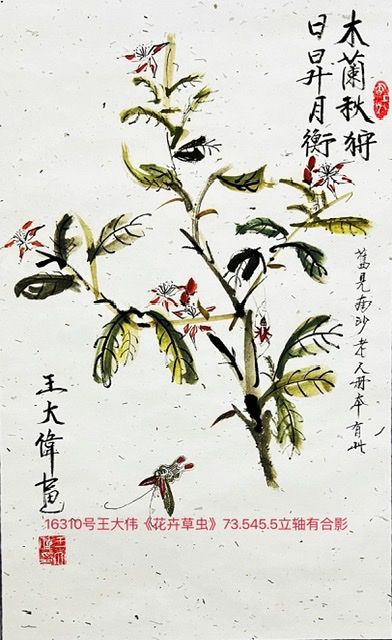 木蘭秋狩
日日昇月衡
舊見南沙老人册本有此
王大偉畫
16310号王大伟《花卉草虫》73.545.5立轴有合影